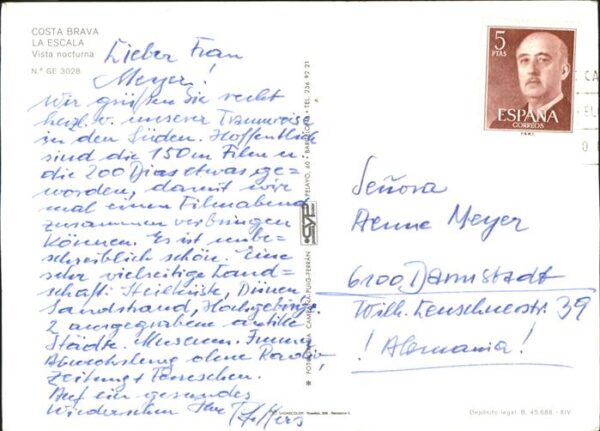 COSTA BRAVA
LA ESCALA
Vista nocturna
N.º GE 3028
Lieber Frau
Meyer!
Wir grüßen Sie recht
herzl. v. unserer Traumreise
in den Süden. Hoffentlich
sind die 150m Film u
die 200 Dias etwas ge=
worden, damit wir
mal einen Filmabend
zusammen verbringen
können. Es ist unbe=
schreiblich schön. Eine
sehr vielseitige Land=
schaft: Steilküste, Dünen
Sandstrand, Hochgebirge
2 ausgegrabene antike
Städte. Museum. Immer
Abwechslung ohne Radio
Zeitung + Fernsehen.
Auf ein gesundes
Wiedersehen Ihre
PELAYO, 60 • BARCELONA • TEL. 236 92 21
CYP
CAMPAÑÁ PUIG-FERRÁN
5
PTAS
ESPAÑA
CORREOS
F.N.M.T.
Señora
Aenne Meyer
6100 Darmstadt
Wilh. Leuschnerstr. 39
! Alemania!
Depósito legal. B. 45.688 - XIV